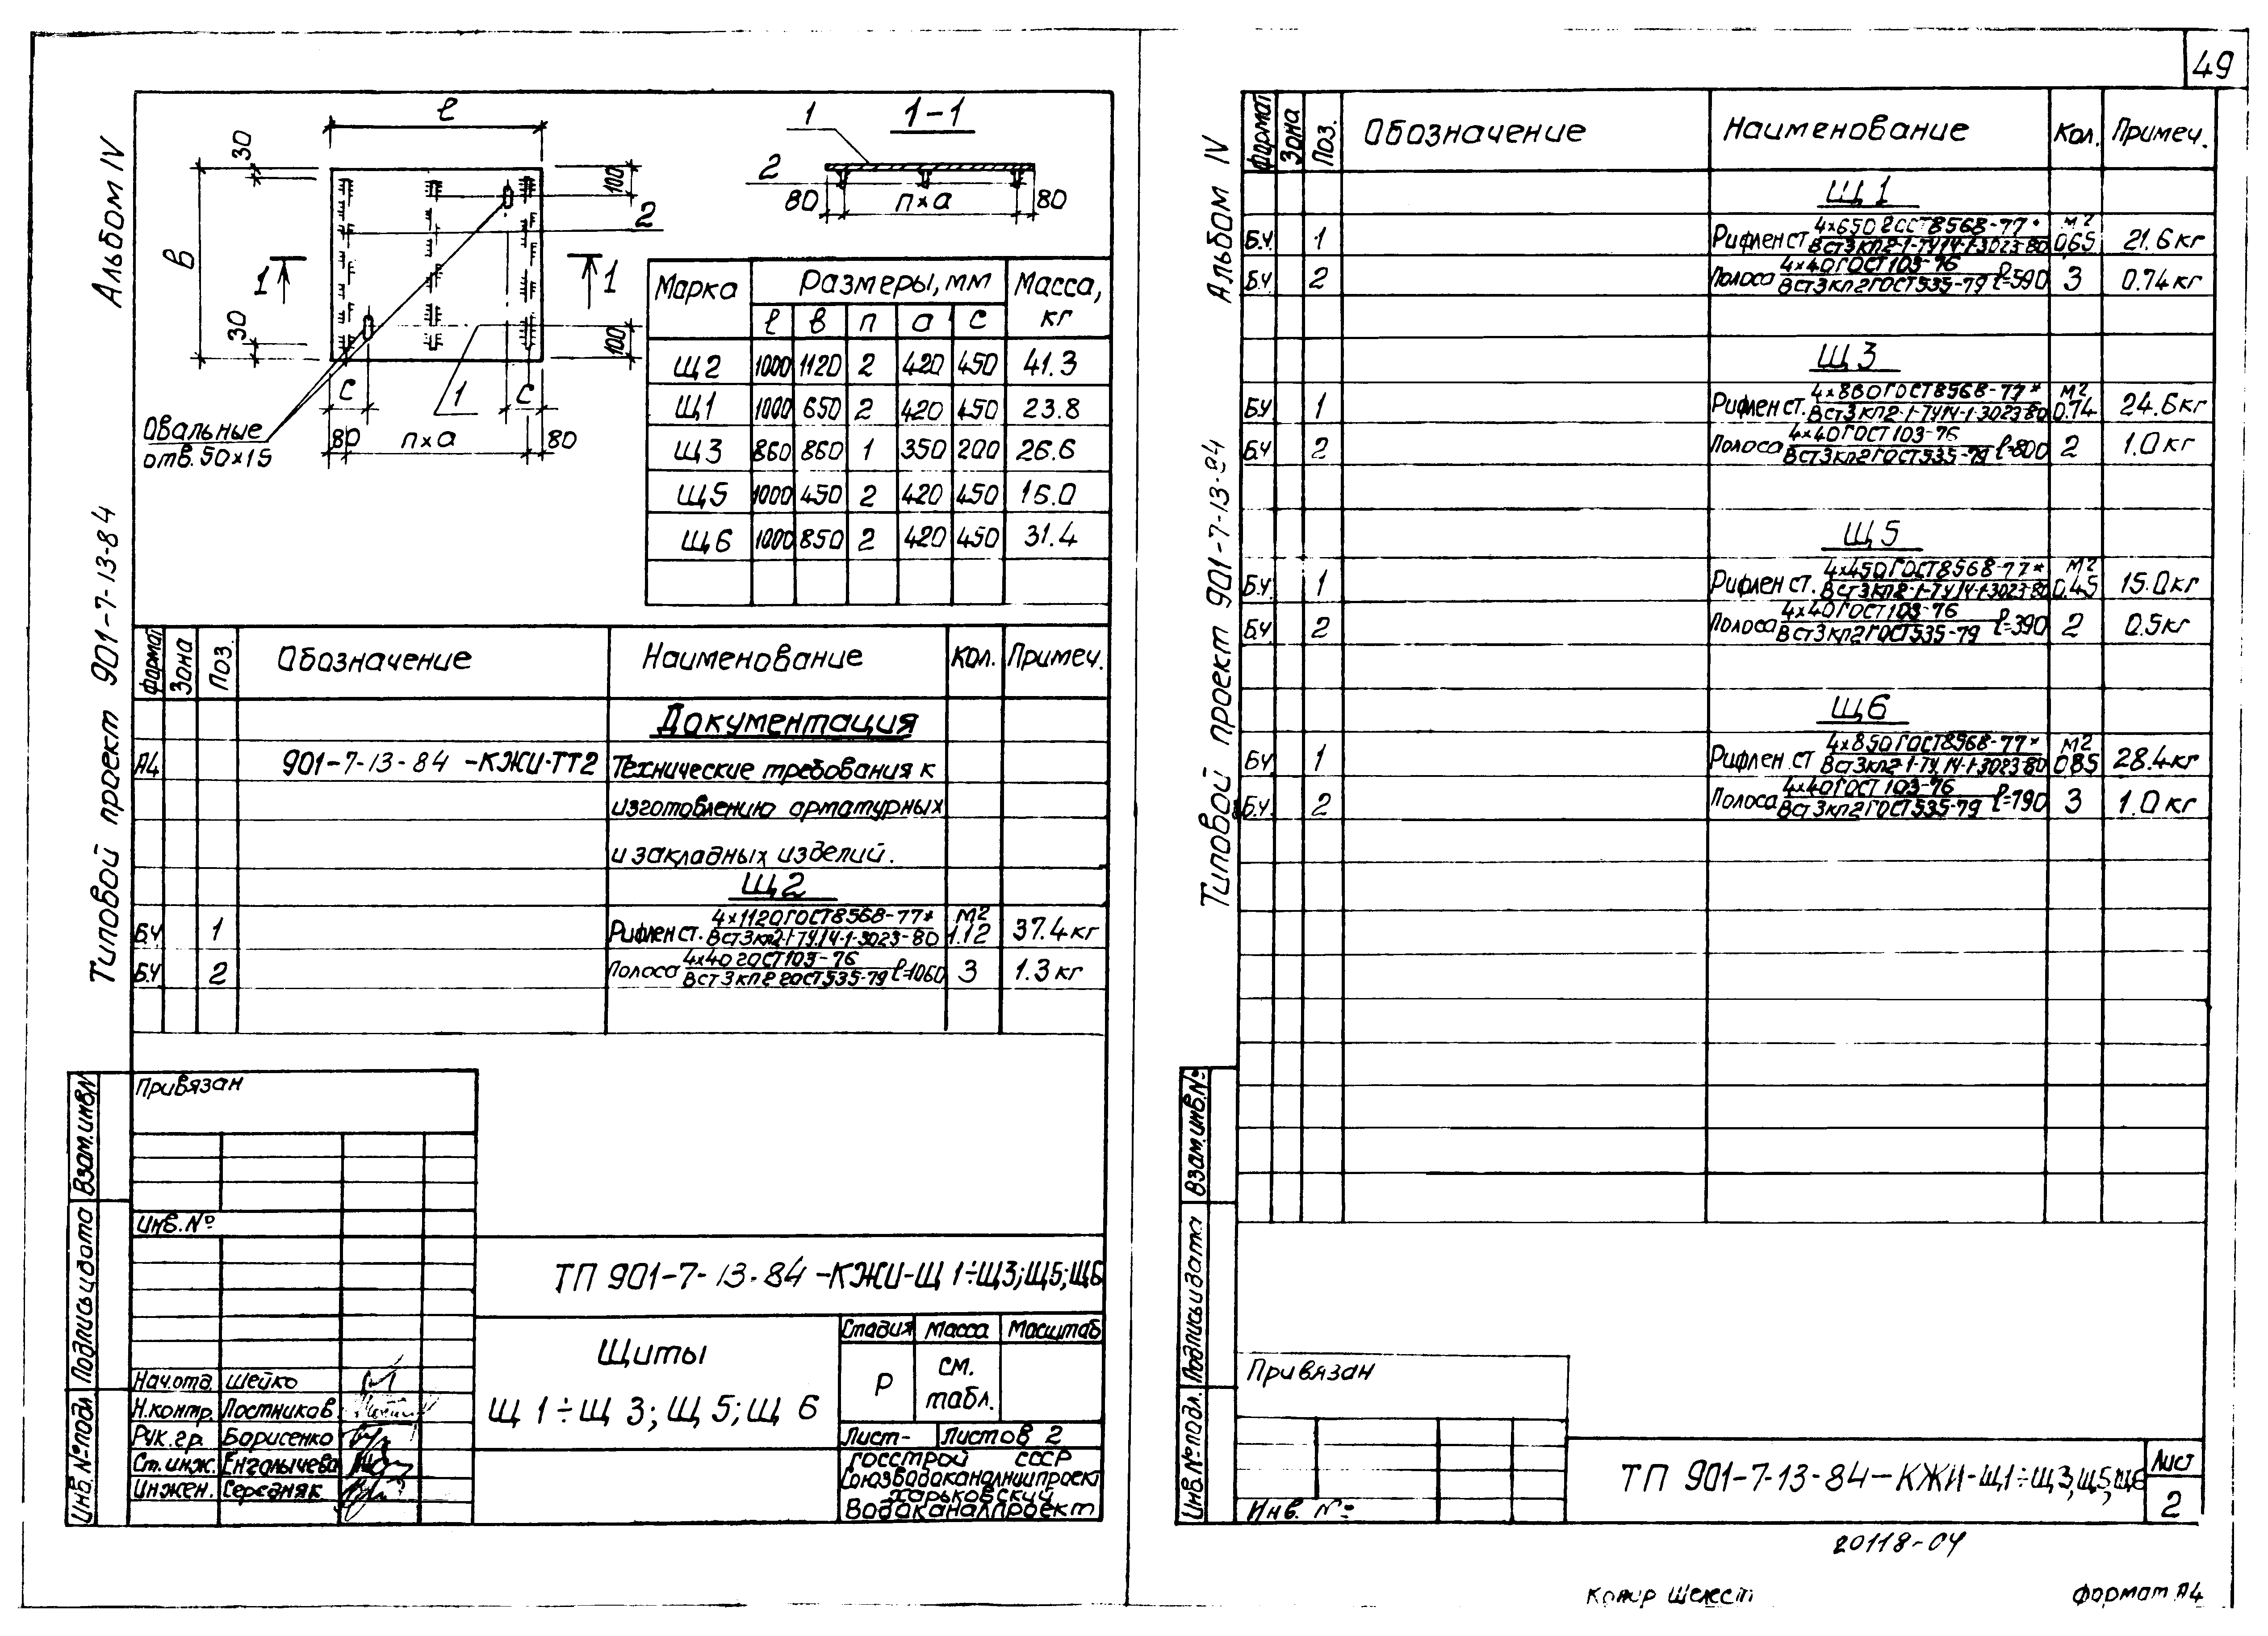 49
Альбом IV
Типовой проект 901-7-13-84
ℓ
30
в
30
100
100
2
1
1
с
1
с
80
п×а
80
Овальные
отв. 50×15
1-1
1
2
80
п×а
80
Марка Размеры, мм Масса, кг
ℓ в п а с
Щ2 1000 1120 2 420 450 41.3
Щ1 1000 650 2 420 450 23.8
Щ3 860 860 1 350 200 26.6
Щ5 1000 450 2 420 450 16.0
Щ6 1000 850 2 420 450 31.4
Формат Зона Поз. Обозначение Наименование Кол. Примеч.
Документация
А4 901-7-13-84-КЖИ-ТТ2 Технические требования к
изготовлению арматурных
и закладных изделий.
Щ2
Б.Ч 1 Рифлен ст. 4×1120 ГОСТ 8568-77* / ВСт3кп2-1-ТУ.14-1-3023-80 м2 1.12 37.4 кг
Б.Ч 2 Полоса 4×40 ГОСТ 103-76 / ВСт3кп2 ГОСТ 535-79 ℓ=1060 3 1.3 кг
Привязан
Инв. №
Взам.инв.№
Подпись и дата
Инв. № подл.
ТП 901-7-13-84-КЖИ-Щ1÷Щ3;Щ5;Щ6
Щиты
Щ1÷Щ3; Щ5; Щ6
Стадия Масса Масштаб
Р см. табл.
Лист- Листов 2
Госстрой СССР
Союзводоканалниипроект
Харьковский
Водоканалпроект
Нач.отд. Шейко
Н.контр. Постников
Рук.гр. Борисенко
Ст.инж. Енгалычева
Инжен. Середняк
Альбом IV
Типовой проект 901-7-13-84
Формат Зона Поз. Обозначение Наименование Кол. Примеч.
Щ1
Б.Ч 1 Рифлен ст. 4×650 ГОСТ 8568-77* / ВСт3кп2-1-ТУ14-1-3023-80 м2 0.65 21.6 кг
Б.Ч 2 Полоса 4×40 ГОСТ 103-76 / ВСт3кп2 ГОСТ 535-79 ℓ=590 3 0.74 кг
Щ3
Б.Ч 1 Рифлен ст. 4×860 ГОСТ 8568-77* / ВСт3кп2-1-ТУ14-1-3023-80 м2 0.74 24.6 кг
Б.Ч 2 Полоса 4×40 ГОСТ 103-76 / ВСт3кп2 ГОСТ 535-79 ℓ=800 2 1.0 кг
Щ5
Б.Ч 1 Рифлен ст. 4×450 ГОСТ 8568-77* / ВСт3кп2-1-ТУ14-1-3023-80 м2 0.45 15.0 кг
Б.Ч 2 Полоса 4×40 ГОСТ 103-76 / ВСт3кп2 ГОСТ 535-79 ℓ=390 2 0.5 кг
Щ6
Б.Ч 1 Рифлен. ст 4×850 ГОСТ 8568-77* / ВСт3кп2-1-ТУ.14-1-3023-80 м2 0.85 28.4 кг
Б.Ч 2 Полоса 4×40 ГОСТ 103-76 / ВСт3кп2 ГОСТ 535-79 ℓ=790 3 1.0 кг
Взам.инв.№
Подпись и дата
Инв. № подл.
Привязан
Инв. №
ТП 901-7-13-84-КЖИ-Щ1÷Щ3,Щ5,Щ6
Лист
2
20118-04
Копир Шелест
Формат А4